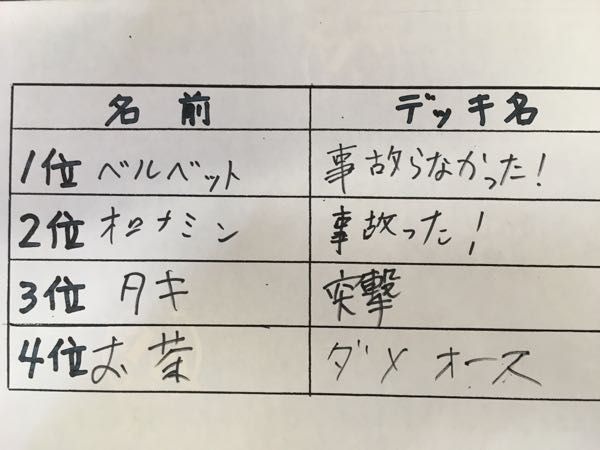 名前 デッキ名
1位 ベルベット 事故らなかった!
2位 オロナミン 事故った!
3位 タキ 突撃
4位 お茶 ダメオース